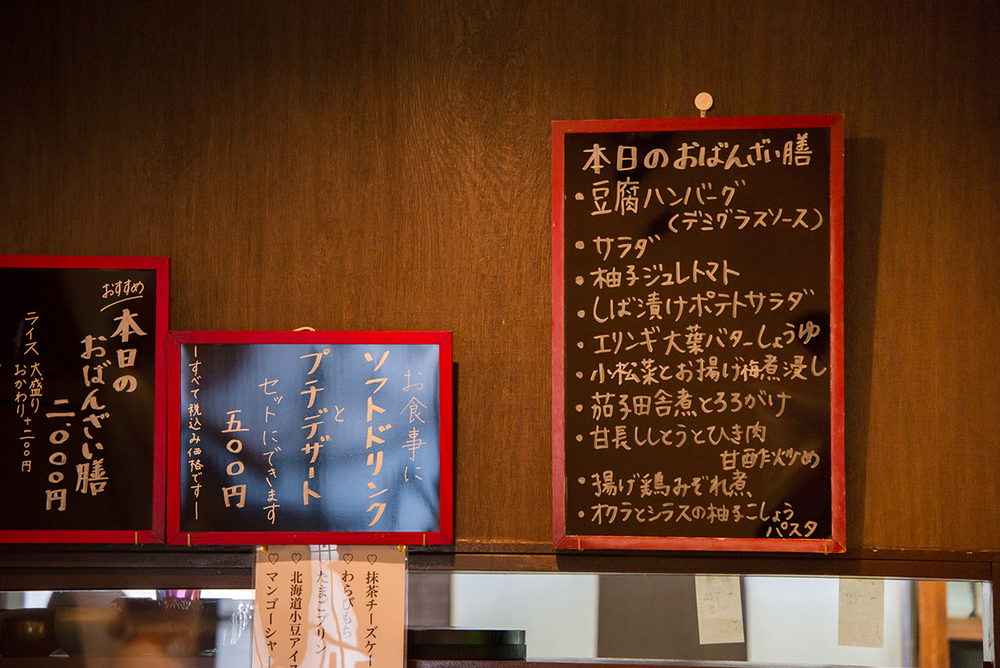 おすすめ
本日の
おばんざい膳
二,〇〇〇円
ライス 大盛り
おかわり +二〇〇円
お食事に
ソフトドリンク
と
プチデザート
セットにできます
五〇〇円
ーすべて税込み価格ですー
本日のおばんざい膳
・豆腐ハンバーグ
(デミグラスソース)
・サラダ
・柚子ジュレトマト
・しば漬けポテトサラダ
・エリンギ大葉バターしょうゆ
・小松菜とお揚げ梅煮浸し
・茄子田舎煮とろろがけ
・甘長ししとうとひき肉
甘酢炒め
・揚げ鶏みぞれ煮
・オクラとシラスの柚子こしょう
パスタ
♡抹茶チーズケー
♡わらびもち
♡たまごプリン
♡北海道小豆アイス
♡マンゴーシャー